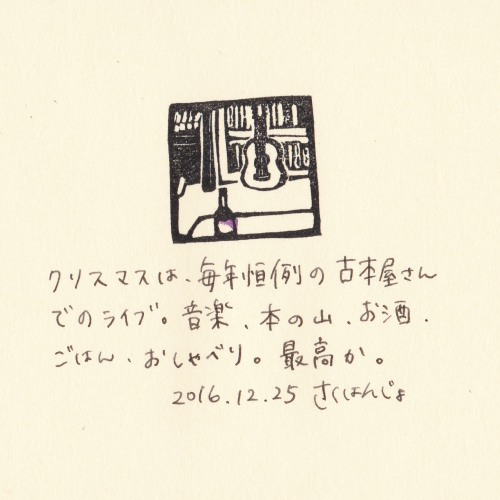 クリスマスは、毎年恒例の古本屋さん
でのライブ。音楽、本の山、お酒、
ごはん、おしゃべり。最高か。
2016.12.25 さくはんじょ